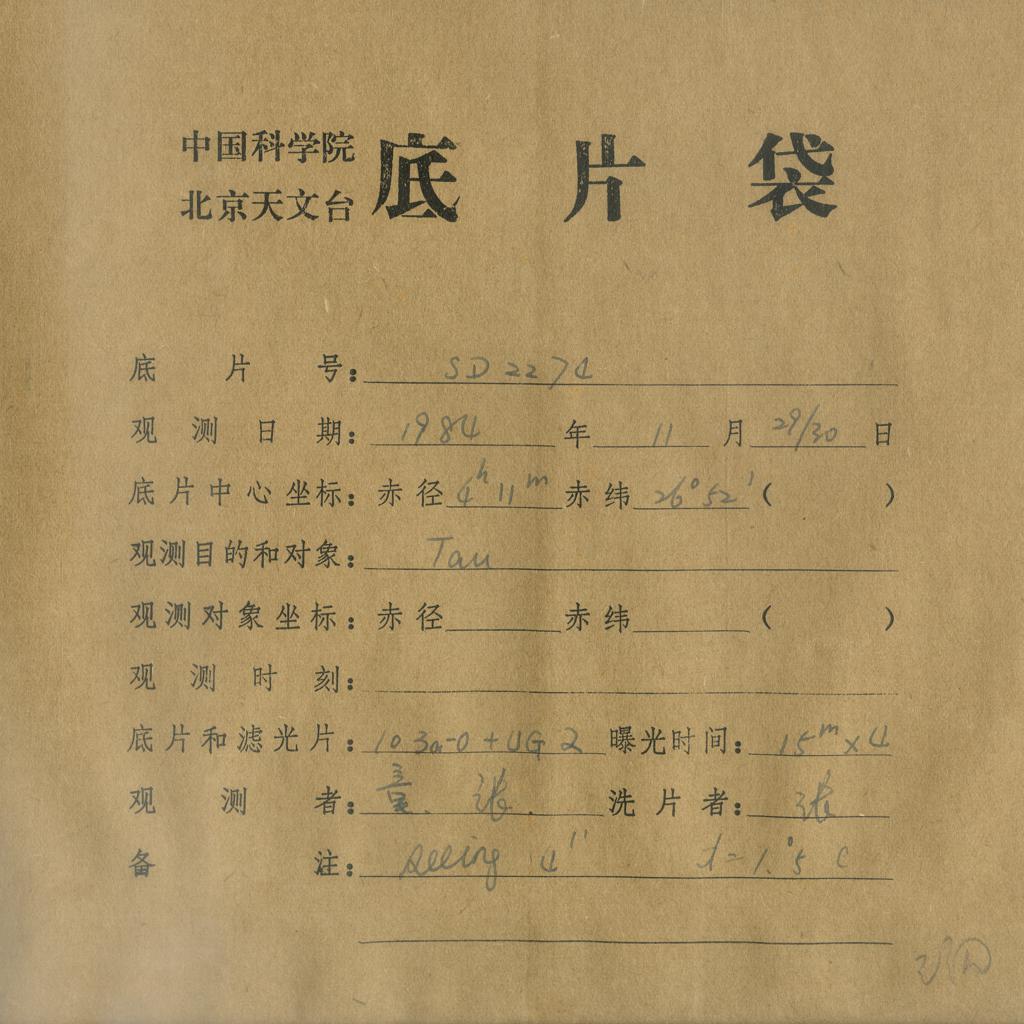 中国科学院
北京天文台
底片袋
底片号：SD2274
观测日期：1984年11月29/30日
底片中心坐标：赤径4h11m赤纬26°52′（ ）
观测目的和对象：Tau
观测对象坐标：赤径 赤纬 （ ）
观测时刻：
底片和滤光片：103a-O+UG2 曝光时间：15m×4
观测者：童. 张. 洗片者：张
备注：seeing 4″ t=1.°5 C